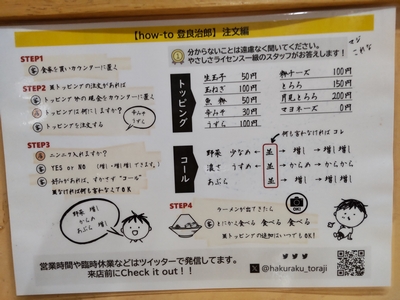 【how-to 登良治郎】注文編
STEP1
客 食券を買いカウンターに置く
STEP2 ※トッピングの注文があれば
客 トッピング分の現金をカウンターに置く
店 トッピングは何にしますか?
客 トッピングを注文する
辛ニラ
うずら
STEP3
店 ニンニク入れますか?
客 YES or NO (増し、増し増しできます。)
客 好みがあれば、すかさず"コール"
※なければ何も言わなくてOK
野菜 増し
からめ
あぶら 増し
分からないことは遠慮なく聞いてください。
やさしさライセンス一級のスタッフがお答えします!
マジ
これな
トッピング
生玉子 50円
玉ねぎ 100円
魚粉 50円
辛ニラ 30円
うずら 100円
粉チーズ 100円
とろろ 150円
月見とろろ 200円
マヨネーズ 0円
何も言わなければ コレ
コール
野菜 少なめ ← 並 → 増し → 増し増し
濃さ うすめ ← 並 → からめ → からから
あぶら 並 → 増し → 増し増し
STEP4
ラーメンが出てきたら
客 とにかく食べる 食べる 食べる
※トッピングの追加はいつでもOK!
OK
営業時間や臨時休業などはツイッターで発信してます。
来店前にCheck it out!!
@hakuraku_toraji